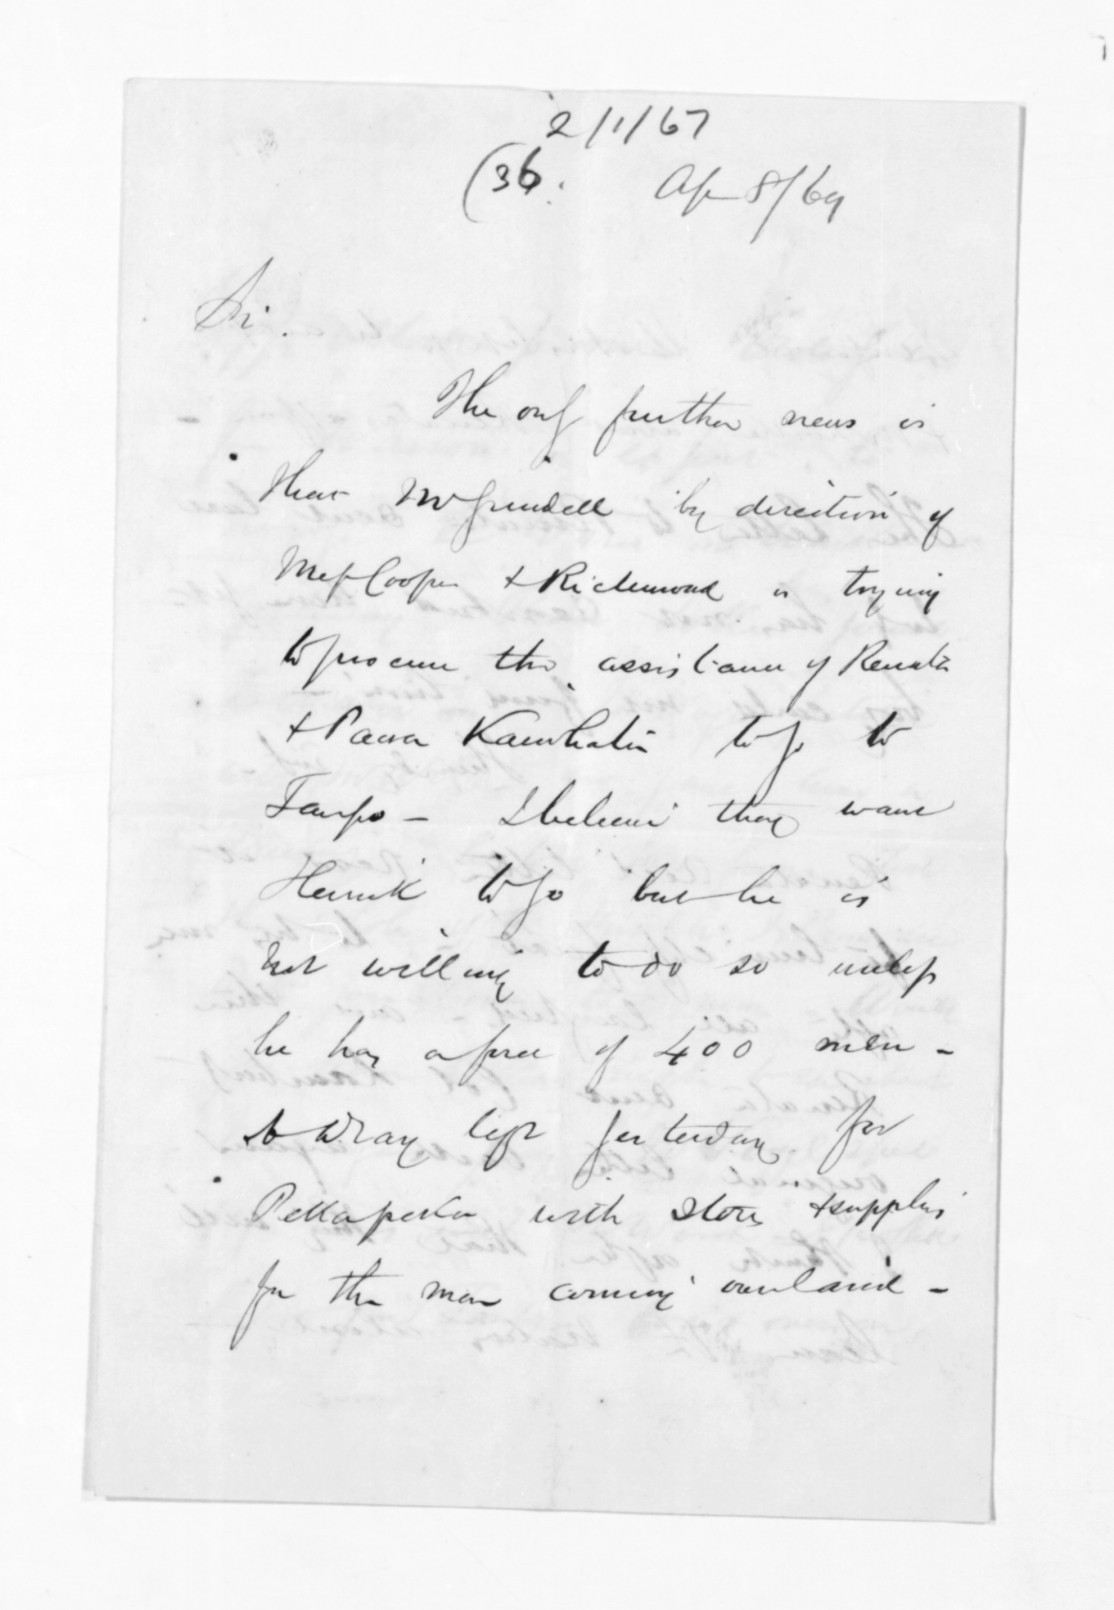 2/1/67
(36.
Ap 8/69
Sir.
The only further news is
that Mr Grindell by direction of
Messrs Cooper & Richmond is trying
to procure the assistance of Renata
& Paora Kaiwhata to go to
Taupo - I believe they want
Henrik to go but he is
not willing to do so unless
he has a force of 400 men -
Wray left yesterday for
Pettapeka with stores & supplies
for the men coming overland -